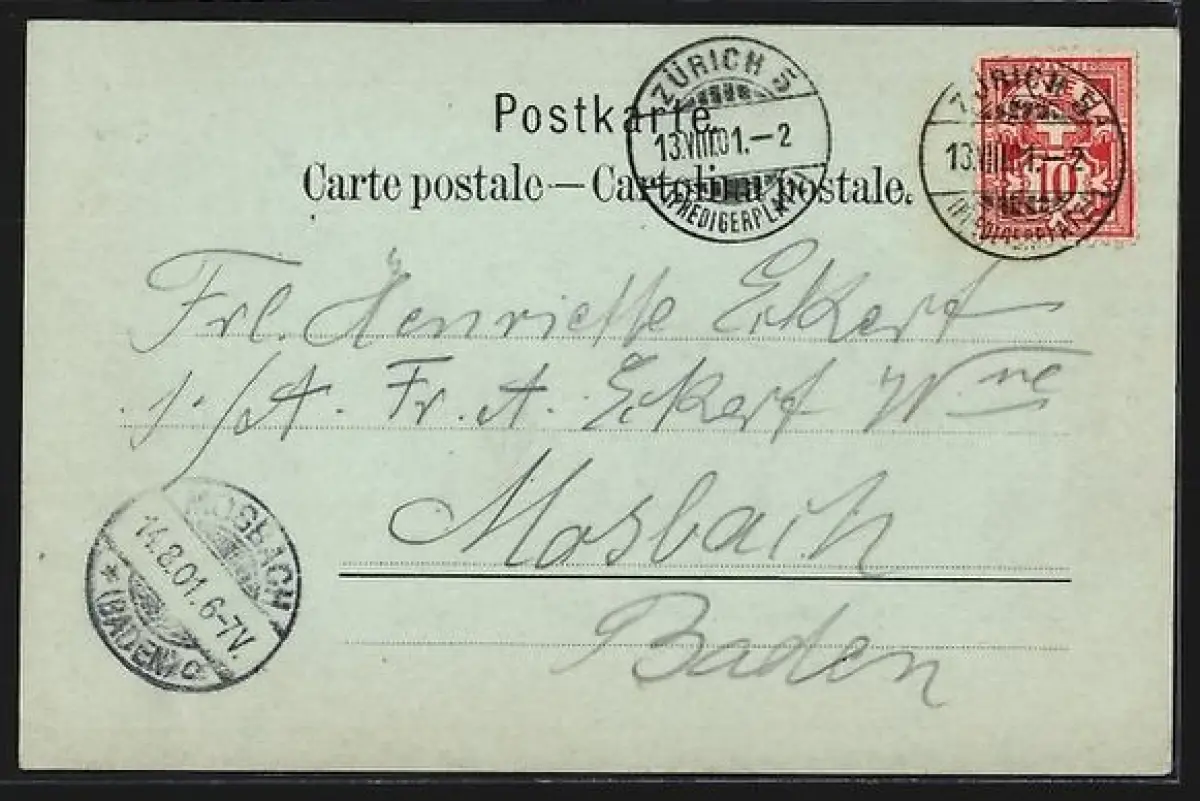 Postkarte.
Carte postale — Cartolina postale.
ZÜRICH 5
13.VIII.01.—2
(PREDIGERPLATZ)
ZÜRICH
13.VIII.01.—2
(PREDIGERPLATZ)
10
Frl. Henriette Eckert
Fr. A. Eckert Wwe
Mosbach
Baden
MOSBACH
14.8.01.6-7V.
* (BADEN) c